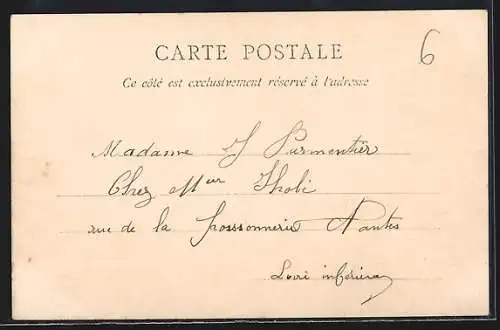 6
CARTE POSTALE
Ce côté est exclusivement réservé à l'adresse
Madame J Purmentier
Chez Mur Thobi
rue de la poissonnerie Nantes
Loire inférieure